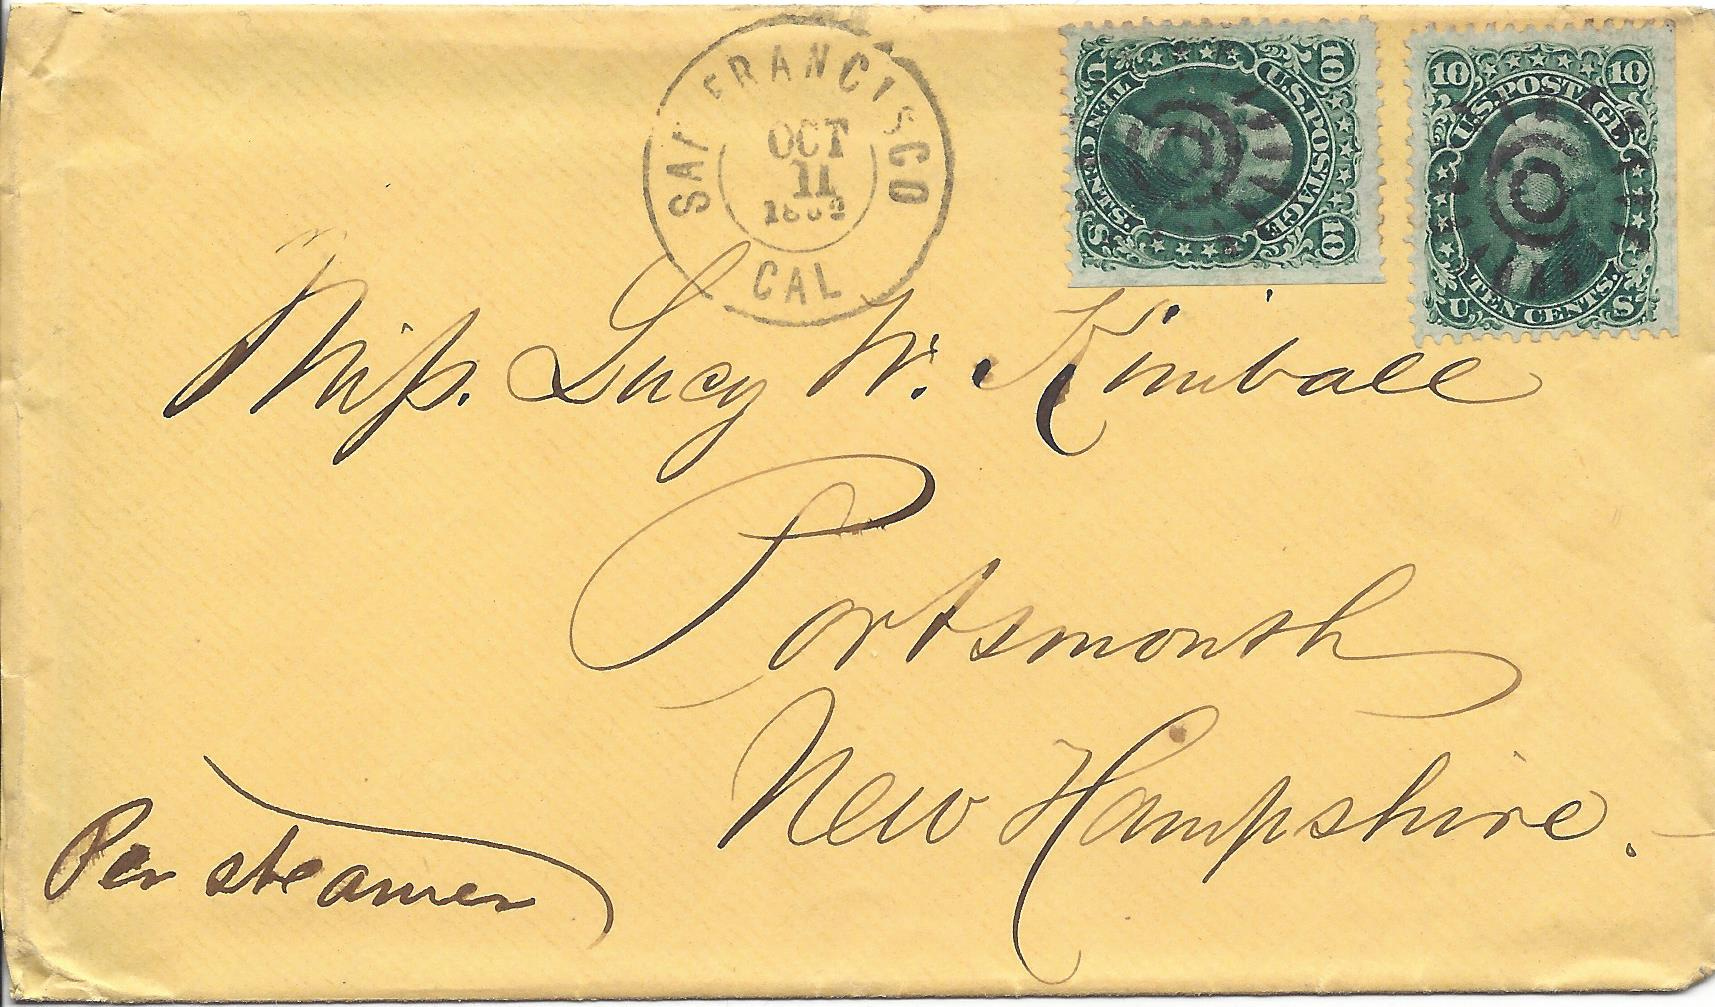 SAN FRANCISCO
OCT
11
1862
CAL
U.S. POSTAGE
10 10
TEN CENTS.
U S
10 10
U.S. POSTAGE
U TEN CENTS. S
Miſs. Lucy W. Kimball
Portsmouth
New Hampshire.
Per steamer